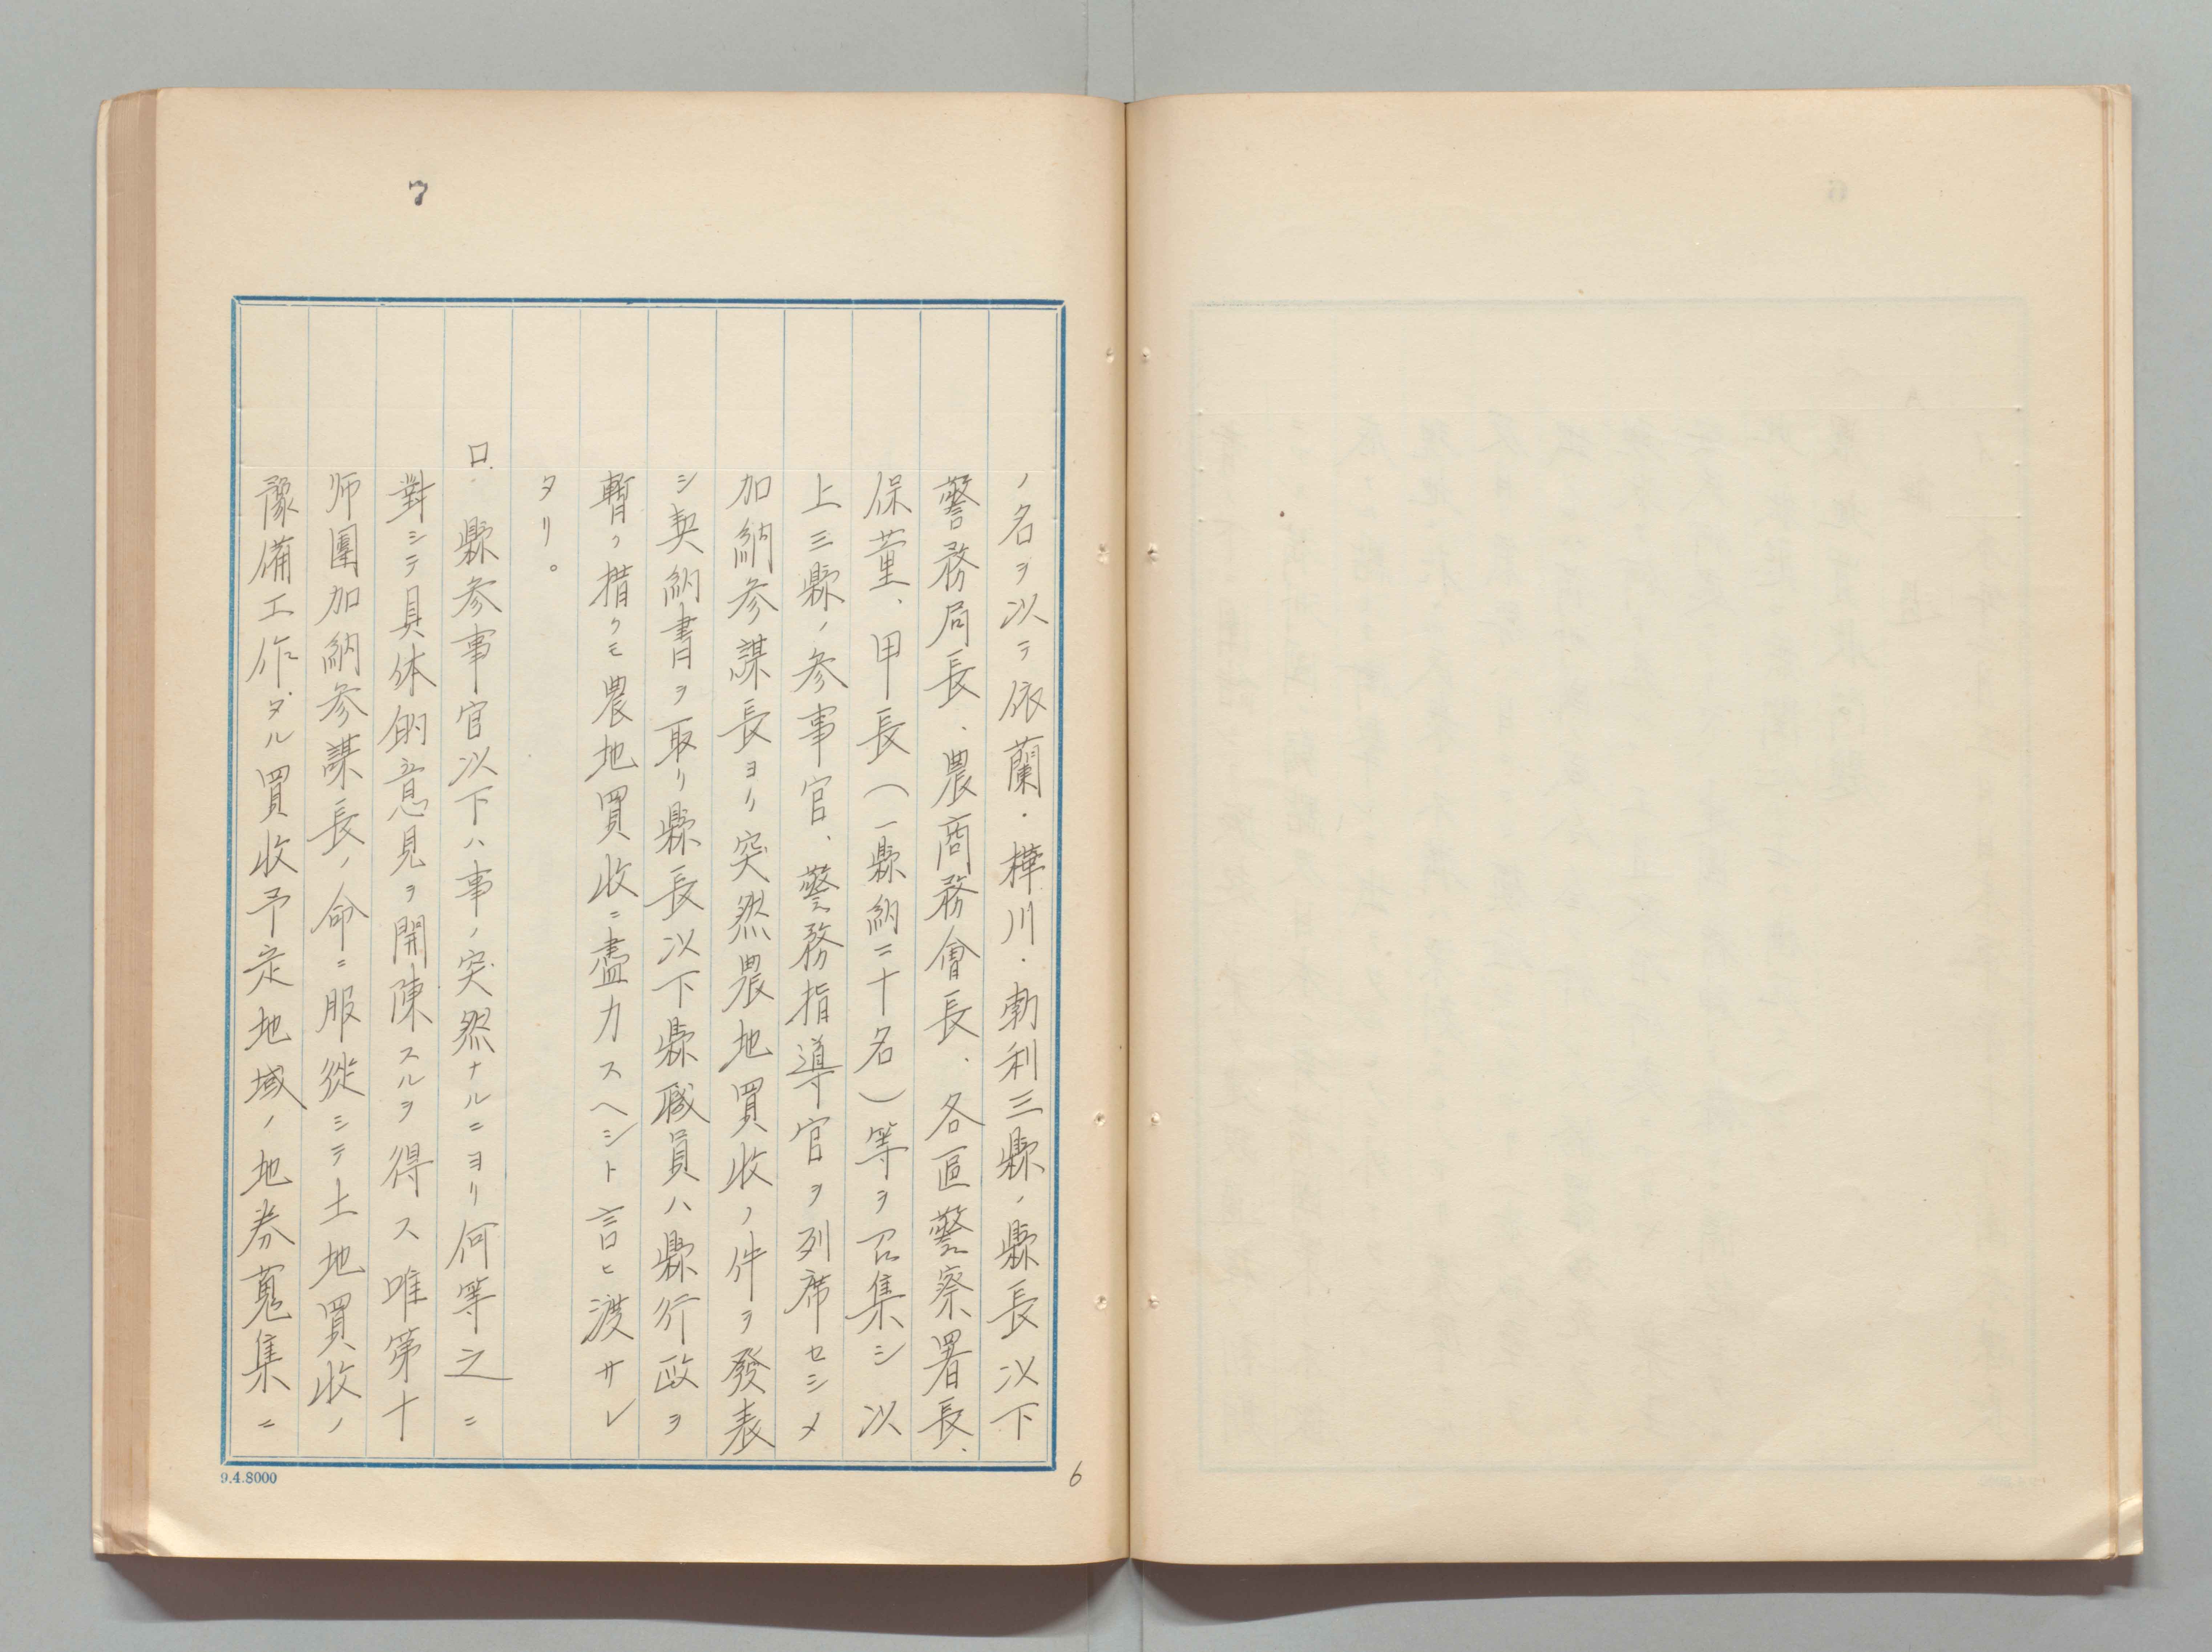 7
ノ名ヲ以テ依蘭.樺川.勃利三縣ノ縣長以下
警務局長、農商務會長、各區警察署長、
保董、甲長(一縣納二十名)等ヲ召集シ以
上三縣ノ参事官、警務指導官ヲ列席セシメ
加納参謀長ヨリ突然農地買收ノ件ヲ發表
シ契納書ヲ取リ縣長以下縣職員ハ縣行政ヲ
暫ク措クモ農地買收ニ盡力スヘシト言ヒ渡サレ
タリ。
ロ.縣参事官以下ハ事ノ突然ナルニヨリ何等之ニ
對シテ具体的意見ヲ開陳スルヲ得ス唯第十
師團加納参謀長ノ命ニ服從シテ土地買收ノ
豫備工作タル買收予定地域ノ地券蒐集ニ
9.4.8000
6